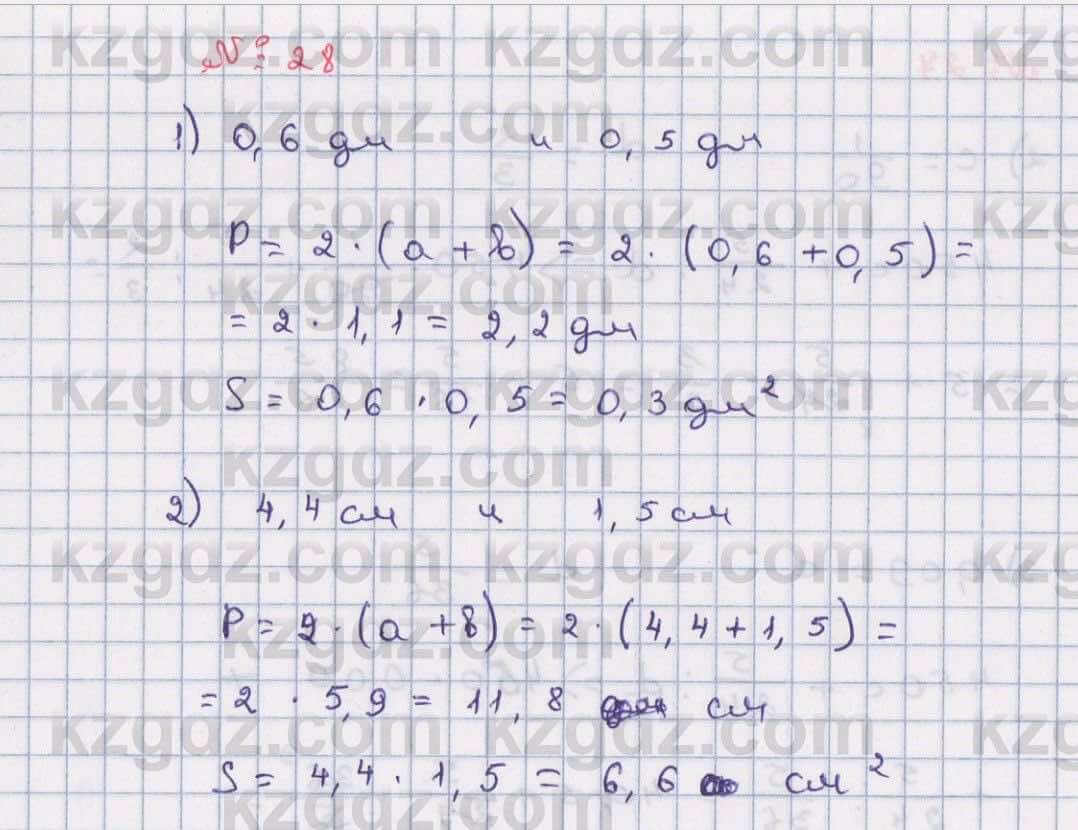 № 28
1) 0,6 дм и 0,5 дм
P = 2 · (a + b) = 2 · (0,6 + 0,5) =
= 2 · 1,1 = 2,2 дм
S = 0,6 · 0,5 = 0,3 дм²
2) 4,4 см и 1,5 см
P = 2 · (a + b) = 2 · (4,4 + 1,5) =
= 2 · 5,9 = 11,8 см
S = 4,4 · 1,5 = 6,6 см²
kzgdz.com